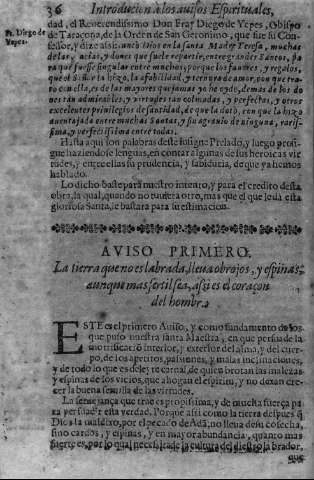 36 Introducion à los auisos Espirituales,
Fr. Diego de Yepes.
dad, el Reuerendissimo Don Fray Diego de Yepes, Obispo
de Taraçona, de la Orden de San Geronimo, que fue su Con-
fessor, y dize assi:
de las, gracias, y dones que suele repartir entre grandes Santos, pa-
ra que fuesse singular entre muchos, porque los fauores, y regalos,
que el Señor la hizo, la afabilidad, y ternura de amor, con que tra-
to con ella, es de las mayores que jamas yo he oydo, demas de los do-
nes tan admirables, y virtudes tan colmadas, y perfectas, y otros
excelentes priuilegios de santidad, de que la dotò, con que la hizo
auentajada entre muchas Santas, y su agrauio de ninguna, raris-
sima, y perfectissima entre todas.
Hasta aqui son palabras deste insigne Prelado, y luego prosi-
gue haziendose lenguas, en contar algunas de sus heroicas vir
tudes, y entre ellas su prudencia, y sabiduria, de que ya hemos
hablado.
Lo dicho baste para nuestro intento, y para el credito desta
obra, la qual, quando no tuuiera otro, mas que el que le dà esta
gloriosa Santa, le bastara para su estimacion.
AVISO PRIMERO.
La tierra que no es labrada, lleua abrojos, y espinas,
aunque mas fertil sea, assi es el coraçon
del hombre.
ESTE es el primero Auiso, y como fundamento de los
que puso nuestra santa Maestra, en que persuade la
mortificacion interior, y exterior del alma, y del cuer-
po, de los apetitos, passiones, y malas inclinaciones,
y de todo lo que es deleyte carnal, de quien brotan las malezas
y espinas de los vicios, que ahogan el espiritu, y no dexan cre-
cer la buena semilla de las virtudes.
La semejança que trae es propissima, y de mucha fuerça pa-
ra persuadir esta verdad. Porque assi como la tierra despues q̃
Dios la maldixo, por el pecado de Adã, no lleua de su cosecha,
sino cardos, y espinas, y en mayor abundancia, quanto mas
fuerte es, por lo qual necessita de la cultura del diestro labrador,
que